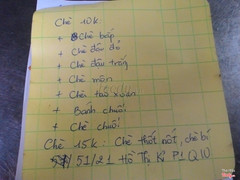 Chè 10k:
+ Chè bắp
+ Chè đậu đỏ
+ Chè đậu trắng
+ Chè môn
+ Chè táo xọn
+ Bánh chuối
+ Chè chuối
Chè 15k: Chè thốt nốt, chè bí
51/21 Hồ Thị Kỉ P1 Q10